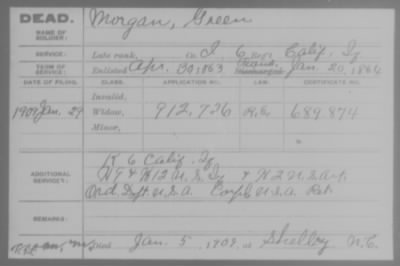 DEAD. Morgan, Green
NAME OF SOLDIER:
SERVICE: Late rank, Co. I, 6 Reg't Calif. If.
TERM OF SERVICE: Enlisted Apr. 30, 1863 Discharged Jan. 20, 1864
DATE OF FILING. CLASS. APPLICATION NO. LAW. CERTIFICATE NO.
Invalid,
1909 Jan. 29 Widow, 912,726 689,874
Minor,
K 6 Calif. If.
ADDITIONAL SERVICES: & H 12 U.S. If & H 2 U.S. Art.
Ord. Dept. U.S.A. Corpl U.S.A. Ret.
REMARKS:
Died Jan. 5, 1909, at Shelby N.C.